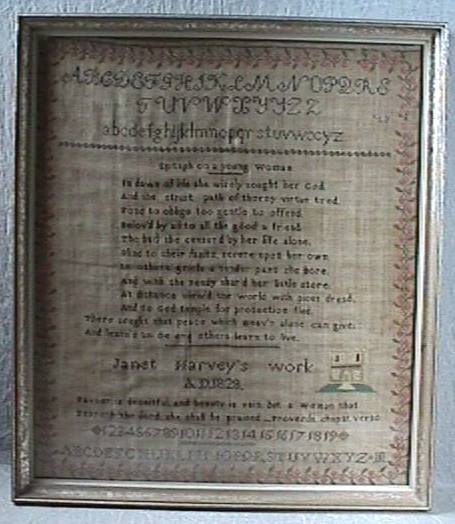 ABCDEFGHIKLMNOPQRS
TUVWXYYZZ
abcdefghijklmnopqrstuvwxyz
Epitaph on a young Woman
In dawn of life she wisely sought her God
And the strait path of thorny virtue trod
Fond to oblige too gentle to offend
Belov'd by all to all the good a friend
The bad she censur'd by her life alone
Blind to their faults, severe upon her own
In others griefs a tender part she bore
And with the needy shar'd her little store
At distance view'd the world with pious dread
And to God temple for protection fled
There sought that peace which heav'n alone can give
And learn'd to die and others learn to live.
Janet Harvey's work
A.D.1828.
Favour is deceitful and beauty is vain but a woman that
the Lord she shall be praised Proverbs chap verse
12345678910111213141516171819
ABCDEFGHIJKLMNOPQRSTUVWXYZ